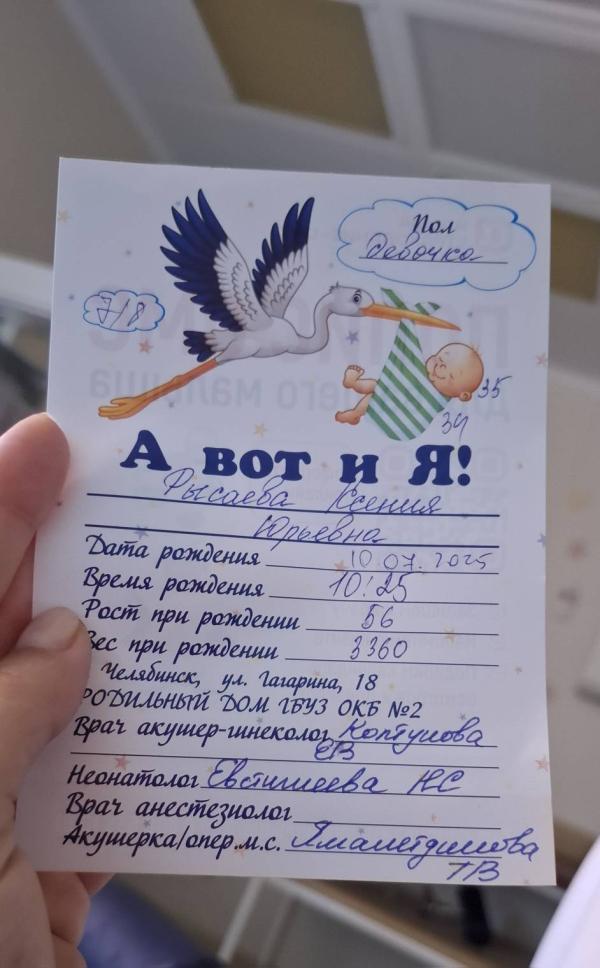 Пол
девочка
7/8
35
34
А вот и Я!
Рысаева Ксения
Юрьевна
Дата рождения 10.07.2025
Время рождения 10:25
Рост при рождении 56
Вес при рождении 3360
Челябинск, ул. Гагарина, 18
РОДИЛЬНЫЙ ДОМ ГБУЗ ОКБ №2
Врач акушер-гинеколог Коптунова
ЕВ
Неонатолог Евстигнеева НС
Врач анестезиолог
Акушерка/опер.м.с. Ямалетдинова
ТВ